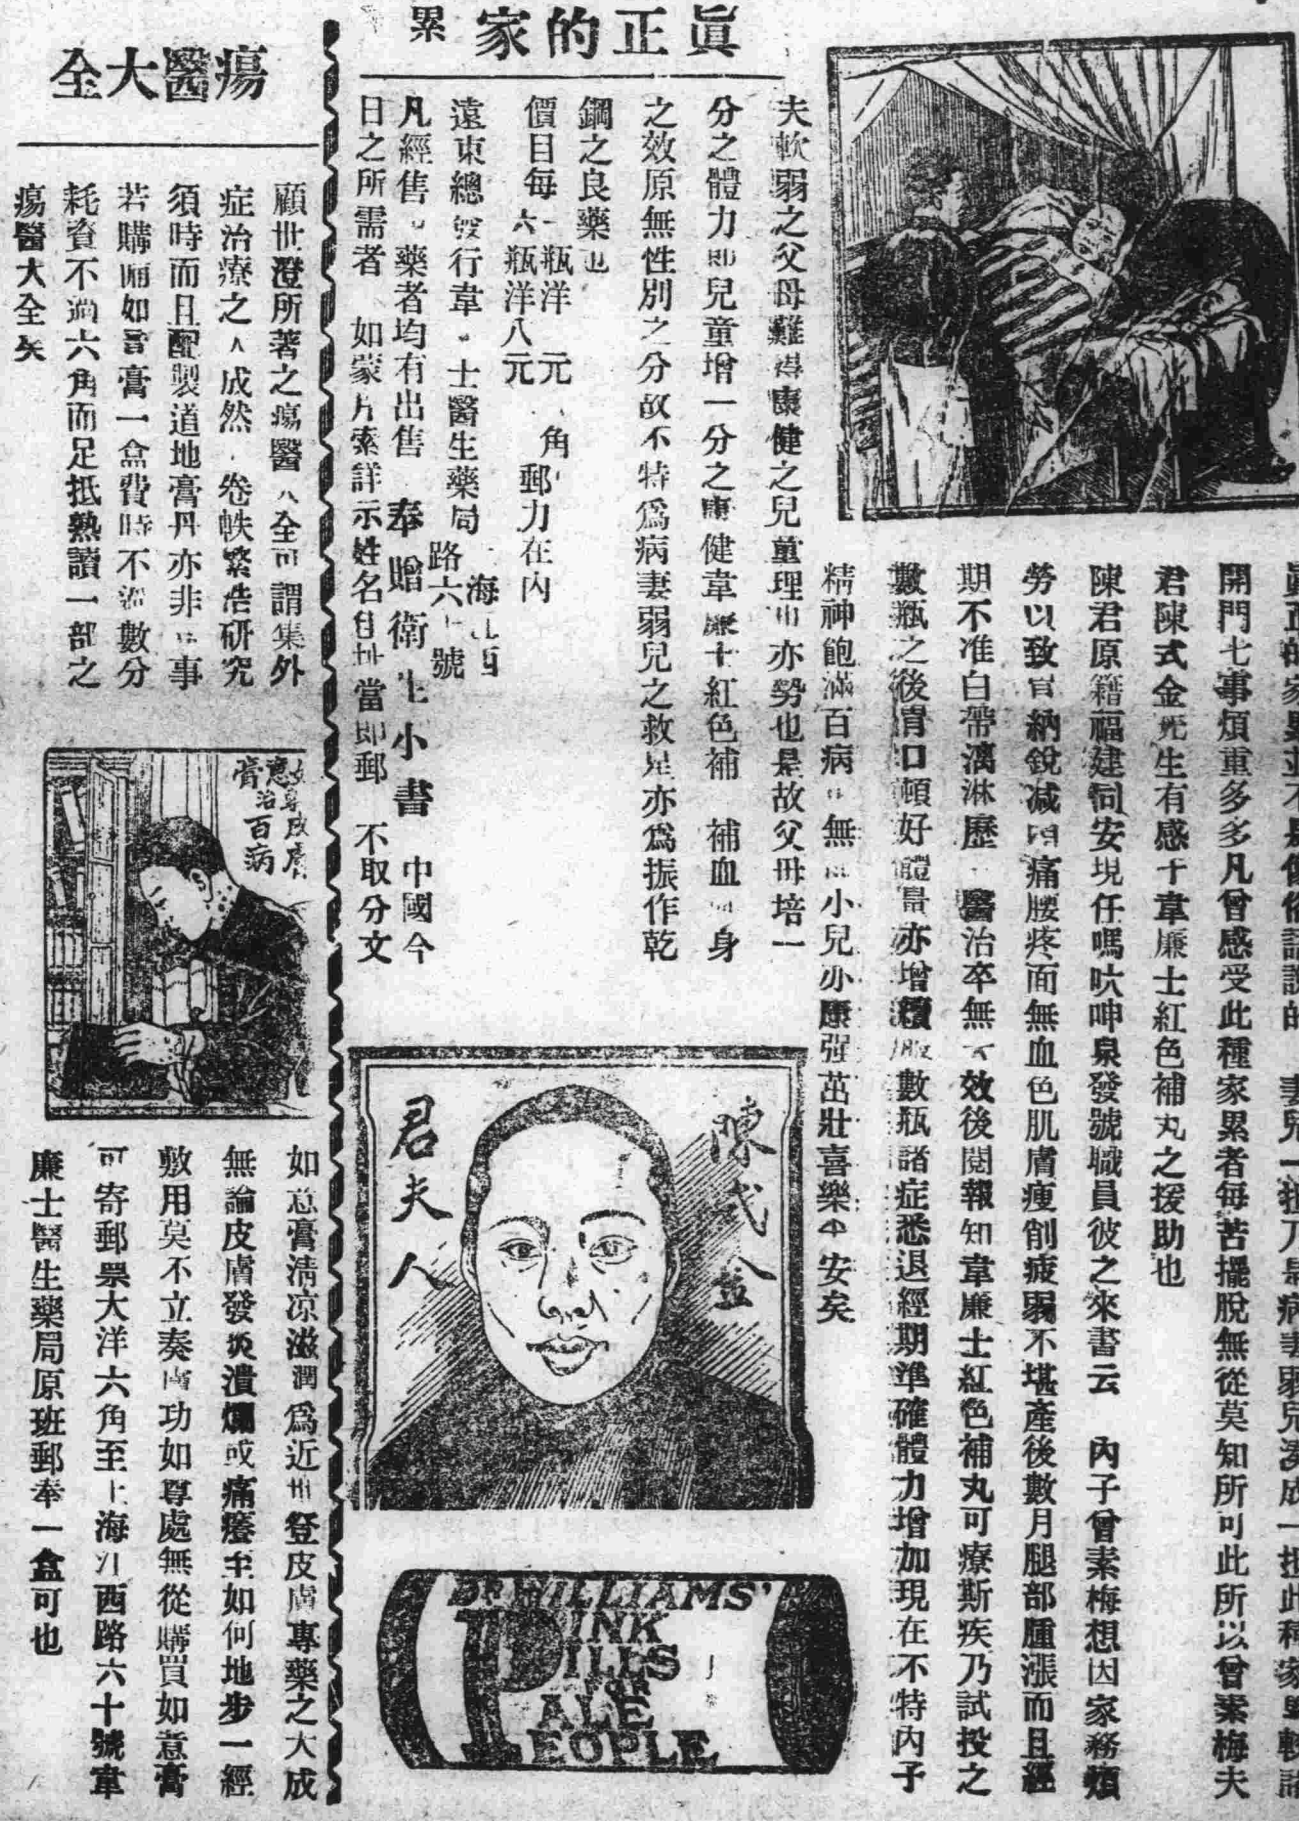 眞正的家累
開門七事煩重多多凡曾感受此種家累者每苦擺脫無從莫知所可此所以曾素梅夫
君陳式金先生有感于韋廉士紅色補丸之援助也
陳君原籍福建同安現任嗎吠呻泉發號職員彼之來書云 內子曾素梅想因家務煩
勞以致胃納銳減 痛腰疼面無血色肌膚瘦削疲弱不堪產後數月腿部腫漲而且經
期不准白帶漓淋歷 醫治卒無 效後閱報知韋廉士紅色補丸可療斯疾乃試投之
數瓶之後胃口頓好體量亦增續服數瓶諸症悉退經期準確體力增加現在不特內子
精神飽滿百病 無 小兒亦康强茁壯喜樂平安矣
夫軟弱之父母難得康健之兒童理 亦勢也是故父母培一
分之體力即兒童增一分之康健韋廉士紅色補 補血 身
之效原無性別之分故不特爲病妻弱兒之救星亦爲振作乾
鋼之良藥也
價目每一瓶洋 元 角
六瓶洋八元 郵力在內
遠東總發行韋 士醫生藥局 海江西
路六十號
凡經售 藥者均有出售 奉贈衛生小書 中國今
日之所需者 如蒙片索詳示姓名住址當即郵 不取分文
陳式金
君夫人
DR WILLIAMS'
PINK
PILLS
FOR
PALE
PEOPLE
瘍醫大全
顧世澄所著之瘍醫大全可謂集外
症治療之大成然 卷帙繁浩研究
須時而且配製道地膏丹亦非 事
若購 如意膏一盒費時不滿數分
耗資不過六角而足抵熟讀一部之
瘍醫大全矣
膏
治百病
如意膏清凉滋潤爲近世登皮膚專藥之大成
無論皮膚發炎潰爛或痛癢至如何地步一經
敷用莫不立奏膚功如尊處無從購買如意膏
可寄郵票大洋六角至上海江西路六十號韋
廉士醫生藥局原班郵奉一盒可也